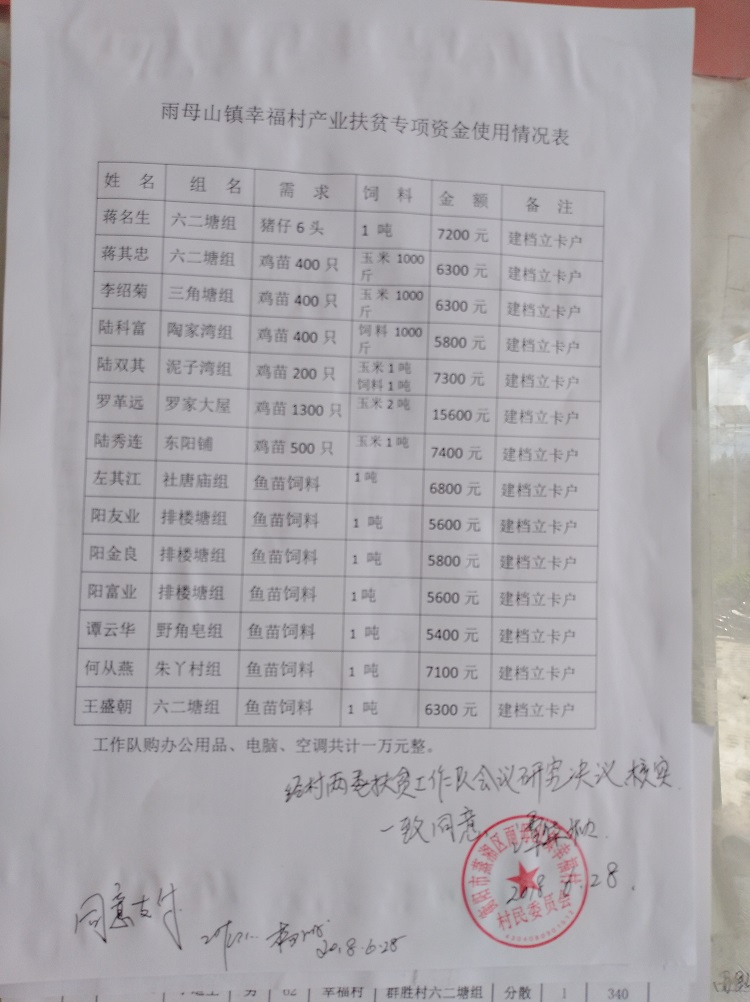 雨母山镇幸福村产业扶贫专项资金使用情况表
姓 名 组 名 需 求 饲 料 金 额 备 注
蒋名生 六二塘组 猪仔6头 1 吨 7200元 建档立卡户
蒋其忠 六二塘组 鸡苗400只 玉米1000斤 6300元 建档立卡户
李绍菊 三角塘组 鸡苗400只 玉米1000斤 6300元 建档立卡户
陆科富 陶家湾组 鸡苗400只 饲料1000斤 5800元 建档立卡户
陆双其 泥子湾组 鸡苗200只 玉米1吨 饲料1吨 7300元 建档立卡户
罗革远 罗家大屋 鸡苗1300只 玉米2吨 15600元 建档立卡户
陆秀连 东阳铺 鸡苗500只 玉米1吨 7400元 建档立卡户
左其江 社唐庙组 鱼苗饲料 1吨 6800元 建档立卡户
阳友业 排楼塘组 鱼苗饲料 1 吨 5600元 建档立卡户
阳金良 排楼塘组 鱼苗饲料 1 吨 5800元 建档立卡户
阳富业 排楼塘组 鱼苗饲料 1 吨 5600元 建档立卡户
谭云华 野角皂组 鱼苗饲料 1 吨 5400元 建档立卡户
何从燕 朱丫村组 鱼苗饲料 1 吨 7100元 建档立卡户
王盛朝 六二塘组 鱼苗饲料 1 吨 6300元 建档立卡户
工作队购办公用品、电脑、空调共计一万元整。
经村两委扶贫工作队会议研究决议,核实
一致同意.
村民委员会
同意支付
2018.6.28
男 62 幸福村 群胜村六二塘组 分散 1 340